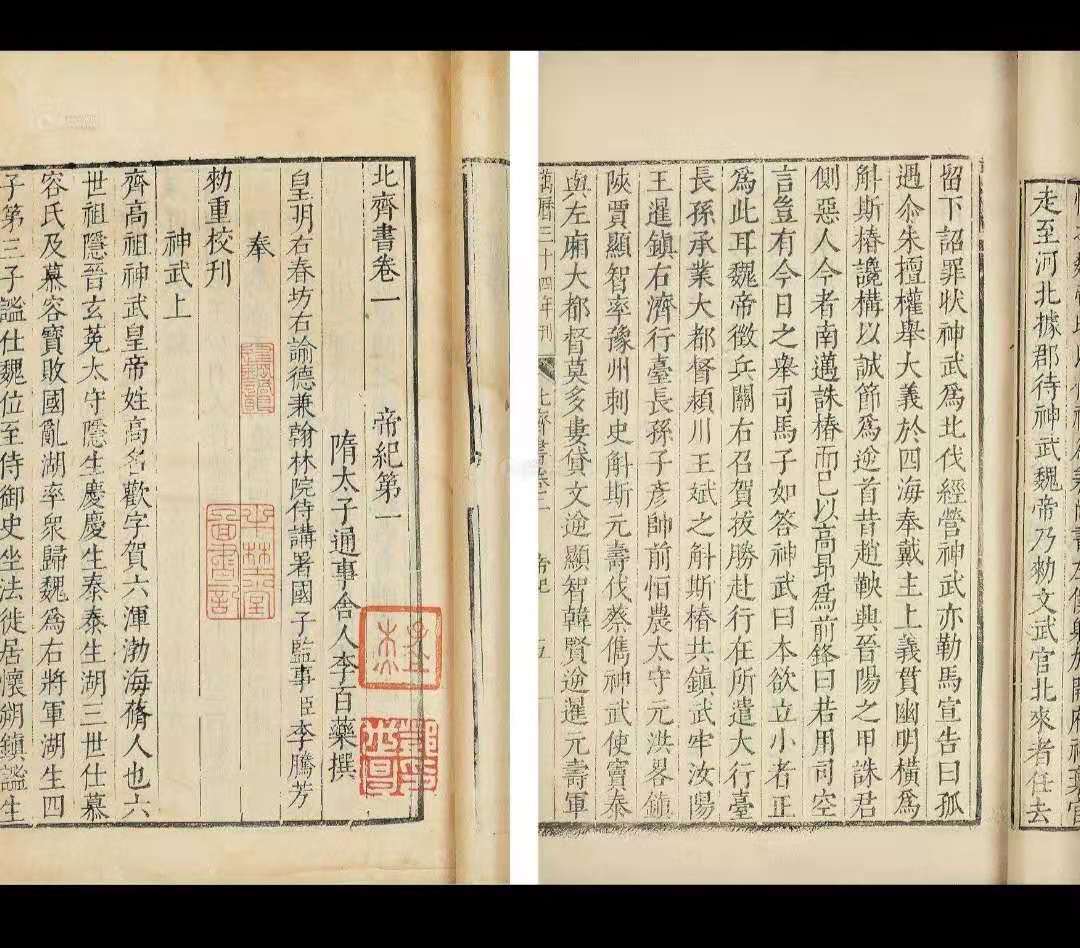 北齊書卷一　帝紀第一
隋太子通事舍人李百藥撰
皇明右春坊右諭德兼翰林院侍講署國子監事臣李騰芳
奉
勅重校刊
神武上
齊高祖神武皇帝姓高名歡字賀六渾渤海脩人也六
世祖隱晉玄菟太守隱生慶慶生泰泰生湖三世仕慕
容氏及慕容寶敗國亂湖率衆歸魏爲右將軍湖生四
子第三子謐仕魏位至侍御史坐法徙居懷朔鎮謐生
走至河北據郡待神武魏帝乃勅文武官北來者任去
留下詔罪狀神武爲北伐經營神武亦勒馬宣告曰孤
遇尒朱擅權舉大義於四海奉戴主上義貫幽明橫爲
斛斯椿讒構以誠節爲逆首昔趙鞅興晉陽之甲誅君
側惡人今者南邁誅椿而已以高昻爲前鋒曰若用司空
言豈有今日之舉司馬子如答神武曰本欲立小者正
爲此耳魏帝徵兵關右召賀拔勝赴行在所遣大行臺
長孫承業大都督潁川王斌之斛斯椿共鎮武牢汝陽
王暹鎮右濟行臺長孫子彥帥前恒農太守元洪畧鎮
陝賈顯智率豫州刺史斛斯元壽伐蔡儁神武使竇泰
與左廂大都督莫多婁貸文逆顯智韓賢逆暹元壽軍
萬曆三十四年刊　北齊書卷二　帝紀　五